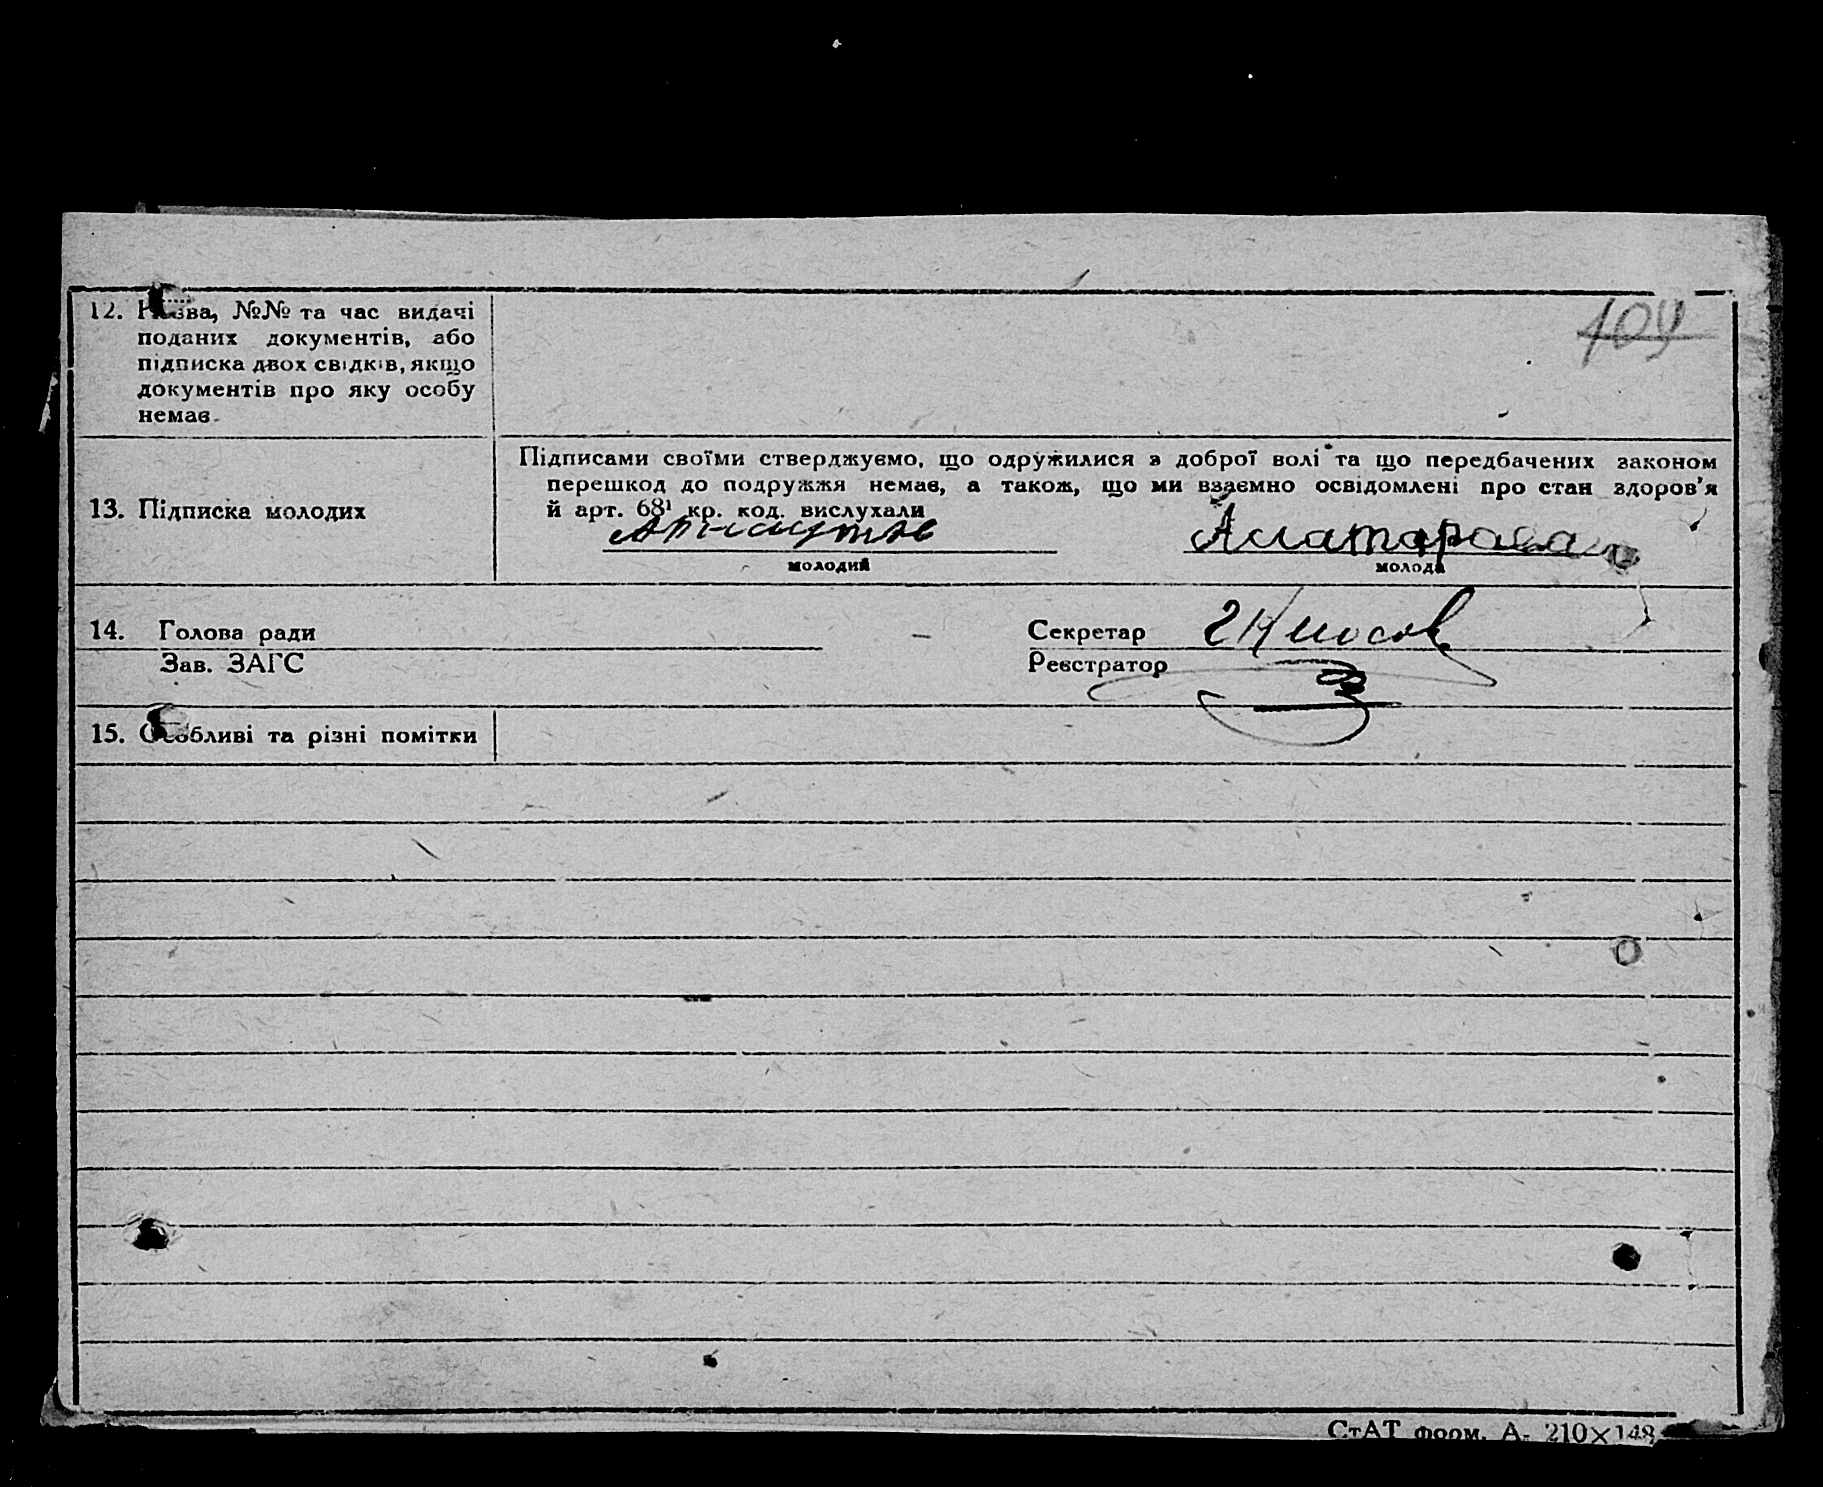 109
12. Назва, №№ та час видачі
поданих документів, або
підписка двох свідків, якщо
документів про яку особу
немає.
Підписами своїми стверджуємо, що одружилися з доброї волі та що передбачених законом
перешкод до подружжя немає, а також, що ми взаємно освідомлені про стан здоров'я
13. Підписка молодих
й арт. 68¹ кр. код. вислухали
молодий
молода
14. Голова ради
Секретар
Зав. ЗАГС
Реєстратор
15. Особливі та різні помітки
СтАТ форм. А- 210×148